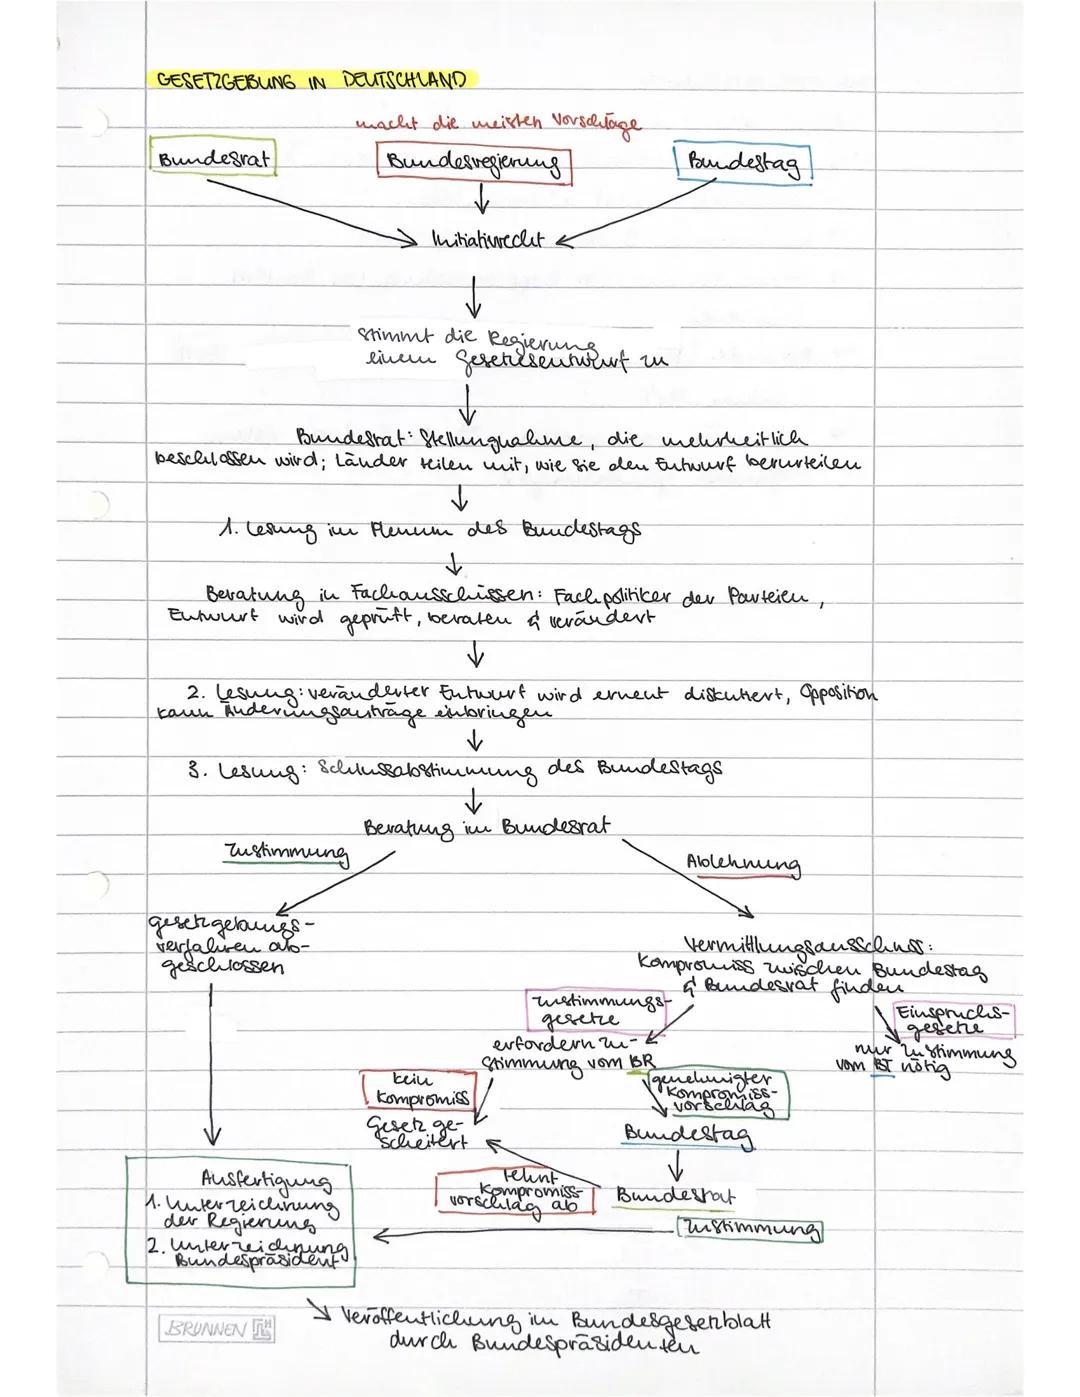 GESETZGEBUNG IN DEUTSCHLAND
macht die meisten Vorschläge
Bundesrat
Bundesregierung
Bundestag
Initiativrecht
stimmt die Regierung
einem Gesetzesentwurf zu
Bundesrat: Stellungnahme, die mehrheitlich
beschlossen wird; Länder teilen mit, wie sie den Entwurf berurteilen
1. Lesung im Plenum des Bundestags
Beratung in Fachausschüssen: Fachpolitiker der Parteien,
Entwurf wird geprüft, beraten & verändert
2. Lesung: veränderter Entwurf wird erneut diskutiert, Opposition
kann Änderungsanträge einbringen
3. Lesung: Schlussabstimmung des Bundestags
Beratung im Bundesrat
Zustimmung
Ablehnung
gesetzgebungs-
verfahren ab-
geschlossen
Vermittlungsausschuss:
Kompromiss zwischen Bundestag
& Bundesrat finden
Zustimmungs-
gesetze
erfordern Zu-
stimmung vom BR
Einspruchs-
gesetze
nur Zustimmung
vom BT nötig
kein
Kompromiss
Gesetz ge-
scheitert
genehmigter
Kompromiss-
vorschlag
Bundestag
lehnt
Kompromiss-
vorschlag ab
Bundesrat
Zustimmung
Ausfertigung
1. Unterzeichnung
der Regierung
2. Unterzeichnung
Bundespräsident
Veröffentlichung im Bundesgesetzblatt
durch Bundespräsidenten
BRUNNEN